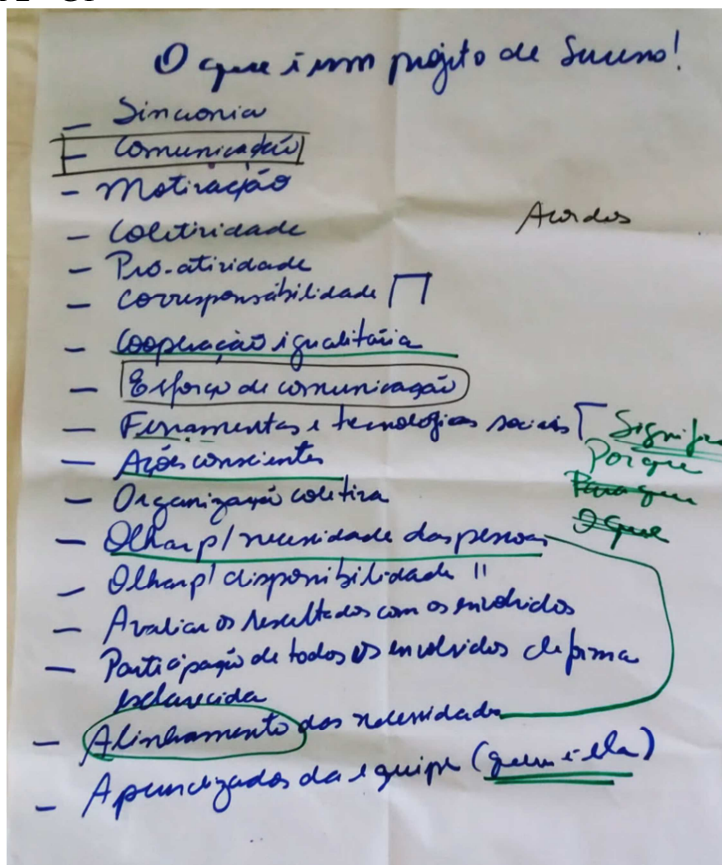 O que é um projeto de Sucesso!
– Sincronia
– Comunicação
– Motivação
Acordos
– Coletividade
– Pró-atividade
– Corresponsabilidade
– Cooperação igualitária
– Esforço de comunicação
– Ferramentas e tecnologias sociais
Porque
– Ações conscientes
Para que
– Organização coletiva
O que
– Olhar p/ necessidade das pessoas
– Olhar p/ disponibilidade "
– Avaliar os resultados com os envolvidos
– Participação de todos os envolvidos de forma
esclarecida
– Alinhamento das necessidades
– Aprendizados da equipe (quem é ela)